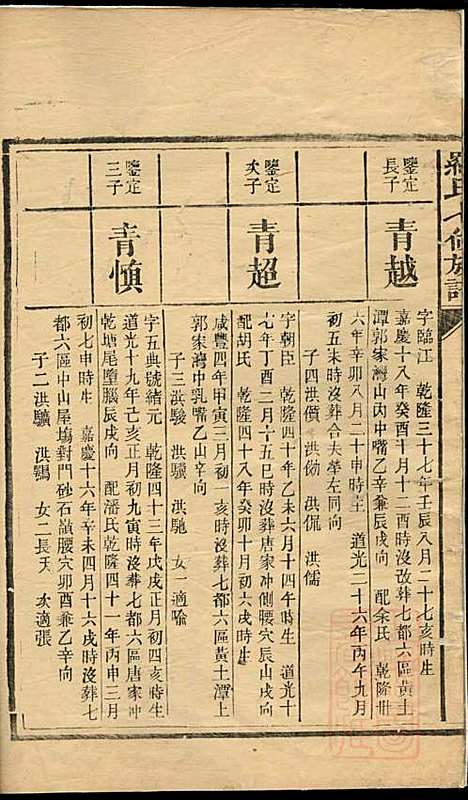 羅氏七修族譜
鑒定
長子
青越
字臨江 乾隆三十七年壬辰八月二十七亥時生
嘉慶十八年癸酉十月十二酉時沒改葬七都六區黃土
潭郭家灣山內中嘴乙辛兼辰戌向 配余氏 乾隆卅
六年辛卯八月二十申時生 道光二十六年丙午九月
初五未時沒葬合夫塋左同向
子四洪儥 洪㑃 洪侃 洪儒
鑒定
次子
青超
字朝臣 乾隆四十年乙未六月十四午時生 道光十
七年丁酉二月十五巳時沒葬唐家冲側腰穴辰山戌向
配胡氏 乾隆四十八年癸卯十月初六戌時生
咸豐四年甲寅三月初一亥時沒葬七都六區黃土潭上
郭家灣中乳嘴乙山辛向
子三洪駿 洪驥 洪馳 女一適喻
鑒定
三子
青慎
字五典號緒元 乾隆四十三年戊戌正月初四亥時生
道光十九年己亥正月初九寅時沒葬七都六區唐家冲
乾塘尾墮腦辰戌向 配潘氏乾隆四十一年丙申三月
初七申時生 嘉慶十六年辛未四月十六戌時沒葬七
都六區中山屋塲對門砂石嶺腰穴卯酉兼乙辛向
子二洪驥 洪鶚 女二長夭 次適張